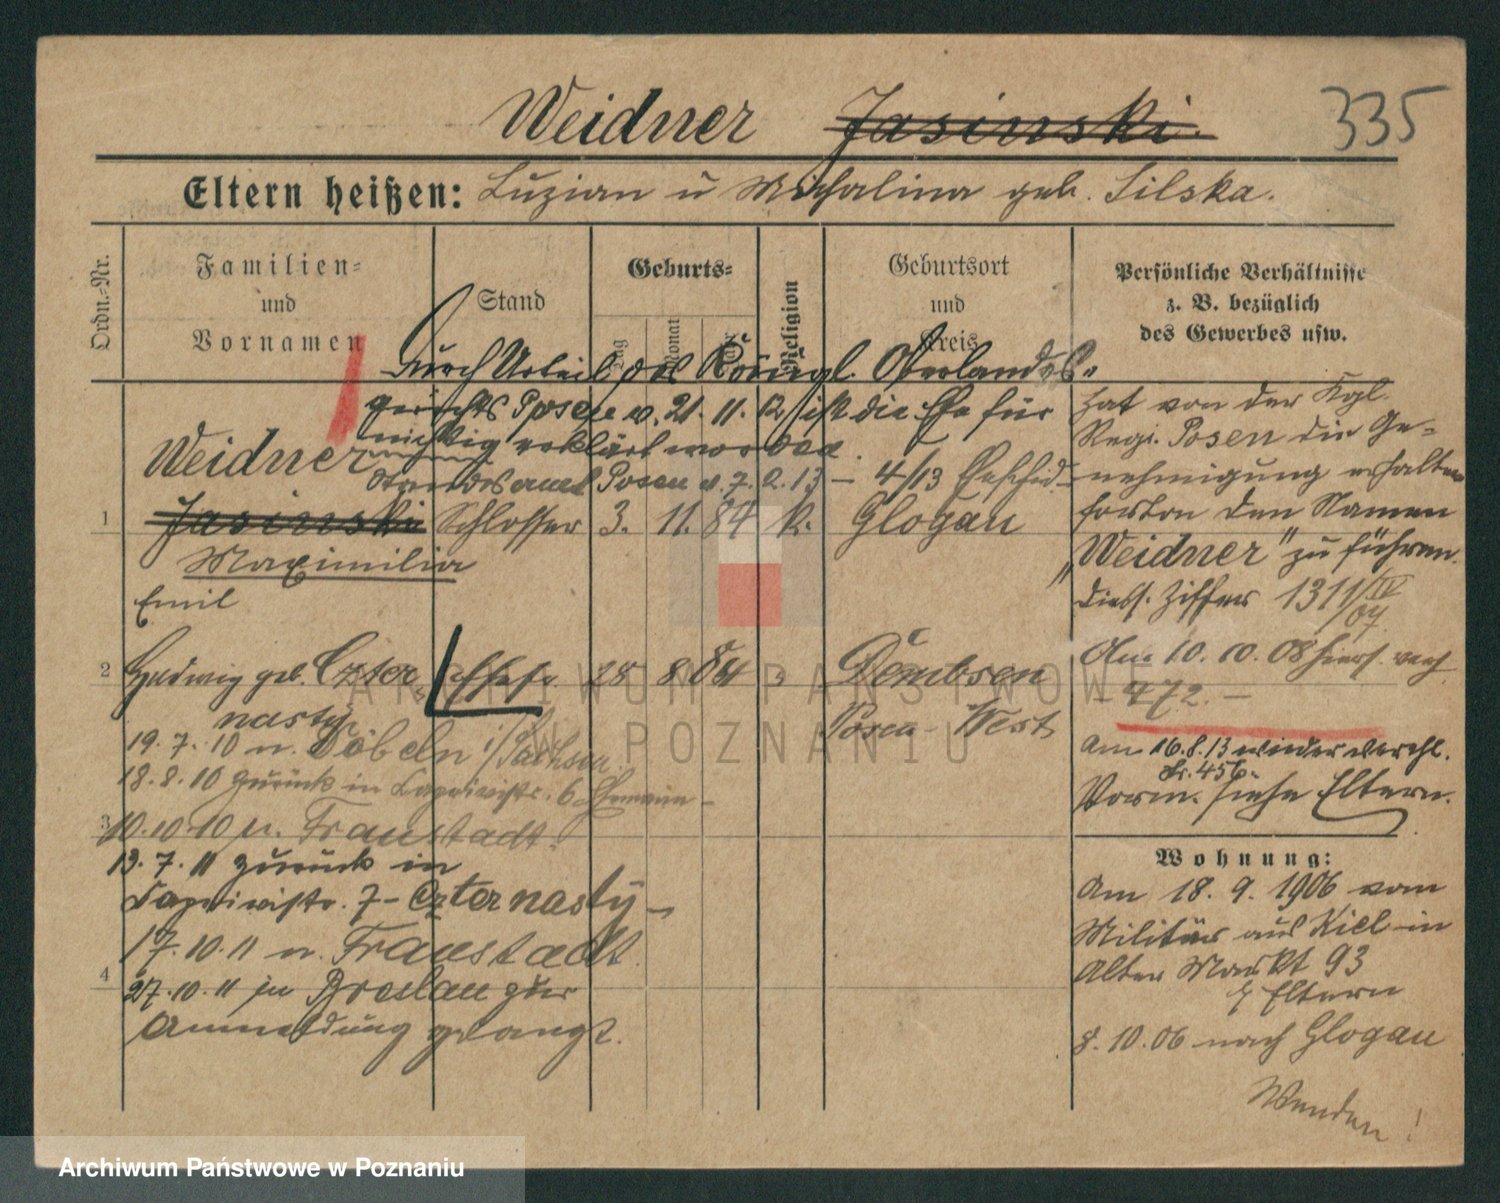 Weidner Jasinski.
335
Eltern heißen: Luzian u Michalina geb. Silska.
Ordn.-Nr.
Familien-
und
Vornamen
Stand
Geburts-
Tag
Monat
Religion
Geburtsort
und
Kreis
Persönliche Verhältnisse
z. B. bezüglich
des Gewerbes usw.
Durch Urteil des Königl. Oberlandes-
gerichts Posen v. 21. 11. 12 ist die Ehe für
nichtig erklärt worden.
Standesamt Posen v. 7. 2. 13 – 4/13
Weidner
1 Jasinski Schlosser 3. 11. 84 k. Glogau
Maximilian
Emil
2 Hedwig geb. Czter Ehefr. 28 8. 84 Dembsen
nasty Posen-West
19. 7. 10 n. Döbeln i/Sachsen
18. 8. 10 zurück in Caprivistr. 6
3 10.10.10 n. Fraustadt.
13. 7. 11 zurück in
Caprivistr. 7 – Czternasty –
17. 10. 11 n. Fraustadt.
4 27. 10. 11 in Breslau zur
Anmeldung gelangt.
Hat von der Kgl.
Regi. Posen die Ge-
nehmigung erhalten
fortan den Namen
„Weidner" zu führen.
diess. Ziffer 1311/IV
07
Am 10. 10. 08 hiers. verh.
472. –
Am 16. 8. 13 wieder verehl.
Nr. 456.
Vorm. siehe Eltern.
Wohnung:
Am 18. 9. 1906 vom
Militär aus Kiel in
Alter Markt 93
b/ Eltern
8. 10. 06 nach Glogau
Wenden!
ARCHIWUM PAŃSTWOWE
W POZNANIU
Archiwum Państwowe w Poznaniu